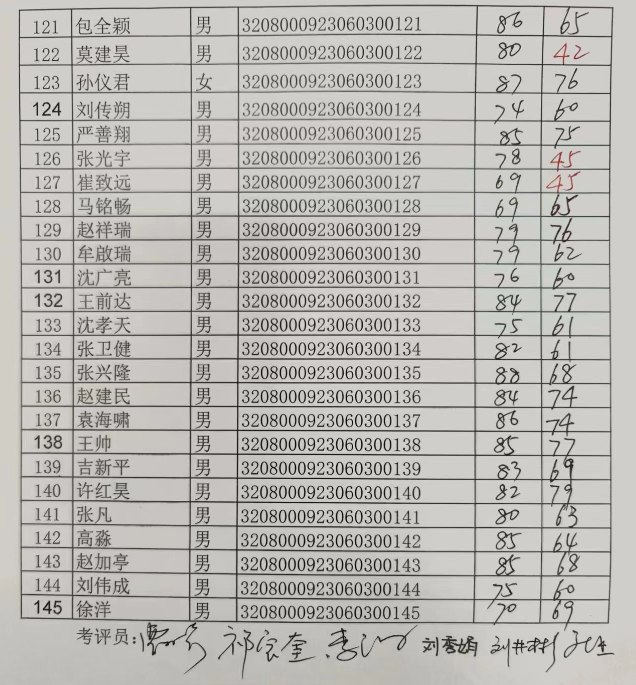 121 包全颖 男 3208000923060300121 86 65
122 莫建昊 男 3208000923060300122 80 42
123 孙仪君 女 3208000923060300123 87 76
124 刘传朔 男 3208000923060300124 74 60
125 严善翔 男 3208000923060300125 85 75
126 张光宇 男 3208000923060300126 78 45
127 崔致远 男 3208000923060300127 69 45
128 马铭畅 男 3208000923060300128 69 65
129 赵祥瑞 男 3208000923060300129 79 76
130 牟啟瑞 男 3208000923060300130 79 62
131 沈广亮 男 3208000923060300131 76 60
132 王前达 男 3208000923060300132 84 77
133 沈孝天 男 3208000923060300133 75 61
134 张卫健 男 3208000923060300134 82 61
135 张兴隆 男 3208000923060300135 88 68
136 赵建民 男 3208000923060300136 84 74
137 袁海啸 男 3208000923060300137 86 74
138 王帅 男 3208000923060300138 85 77
139 吉新平 男 3208000923060300139 83 69
140 许红昊 男 3208000923060300140 82 79
141 张凡 男 3208000923060300141 80 63
142 高淼 男 3208000923060300142 85 64
143 赵加亭 男 3208000923060300143 85 68
144 刘伟成 男 3208000923060300144 75 60
145 徐洋 男 3208000923060300145 70 69
考评员: 刘秀娟 刘井彬